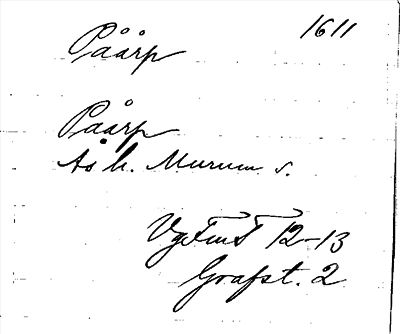 Påårp 1611
Påårp
Ås h. Murum s.
12-13
Grafst. 2